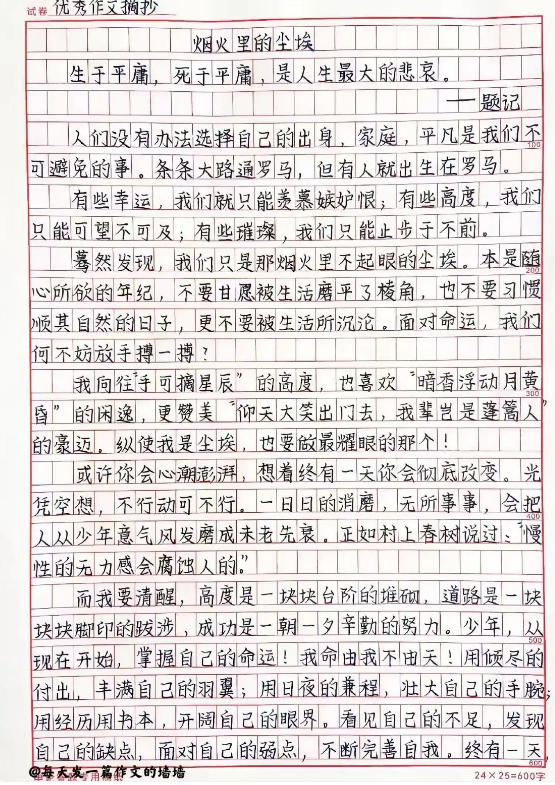 试卷 优秀作文摘抄
烟火里的尘埃
生于平庸，死于平庸，是人生最大的悲哀。
——题记
人们没有办法选择自己的出身，家庭，平凡是我们不
100
可避免的事。条条大路通罗马，但有人就出生在罗马。
有些幸运，我们就只能羡慕嫉妒恨；有些高度，我们
只能可望不可及；有些璀璨，我们只能止步于不前。
蓦然发现，我们只是那烟火里不起眼的尘埃。本是随
200
心所欲的年纪，不要甘愿被生活磨平了棱角，也不要习惯
顺其自然的日子，更不要被生活所沉沦。面对命运，我们
何不妨放手搏一搏？
我向往“手可摘星辰”的高度，也喜欢“暗香浮动月黄
300
昏”的闲逸，更赞美“仰天大笑出门去，我辈岂是蓬蒿人”
的豪迈。纵使我是尘埃，也要做最耀眼的那个！
或许你会心潮澎湃，想着终有一天你会彻底改变。光
凭空想，不行动可不行。一日日的消磨，无所事事，会把
400
人从少年意气风发磨成未老先衰。正如村上春树说过：“慢
性的无力感会腐蚀人的。”
而我要清醒，高度是一块块台阶的堆砌，道路是一块
块块脚印的跋涉，成功是一朝一夕辛勤的努力。少年，从
500
现在开始，掌握自己的命运！我命由我不由天！用倾尽的
付出，丰满自己的羽翼；用日夜的兼程，壮大自己的手腕；
用经历用书本，开阔自己的眼界。看见自己的不足，发现
自己的缺点，面对自己的弱点，不断完善自我。终有一天，
600
@每天发一篇作文的墙墙
24×25=600字